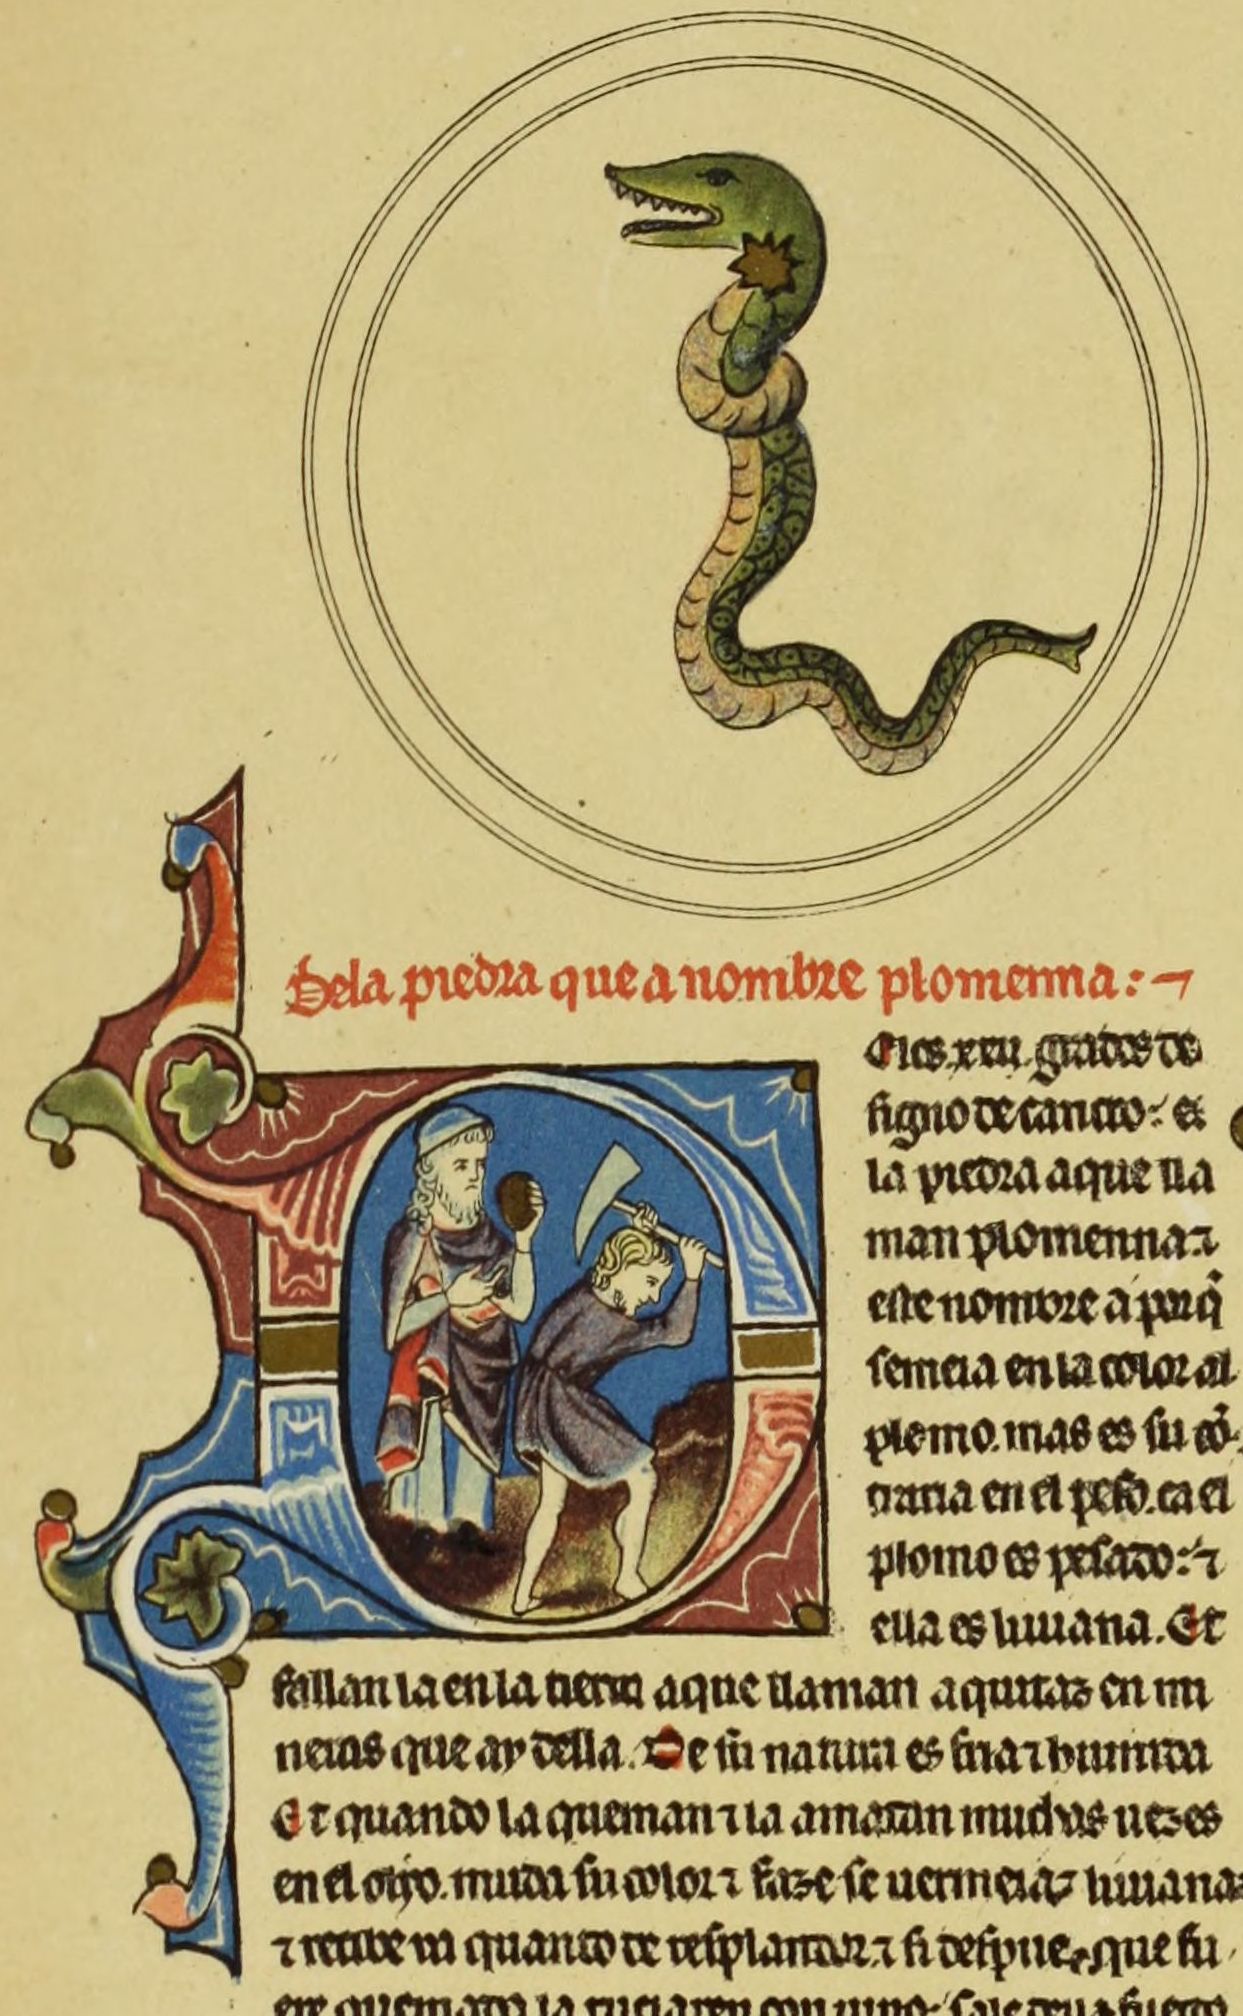 Dela piedra que a nombre plomenna : ¬
Elos xxv. grados de
signo de cancro : es
la piedra a que lla
man plomenna. ⁊
este nombre a porq̃
semeia en la color al
plomo. mas es su cõ
traria en el peso. ca el
plomo es pesado : ⁊
ella es liuiana. Et
fallan la en la tierra a que llaman aquitaz en mi
neras que ay della. De su natura es fria ⁊ humida
Et quando la queman ⁊ la amatan muchas uezes
en el olyo. muda su color ⁊ faze se uermeia ⁊ liuiana
⁊ recibe ya quanto de resplandor. ⁊ si despues que fu
ere quemada la con uino : sale della fuego